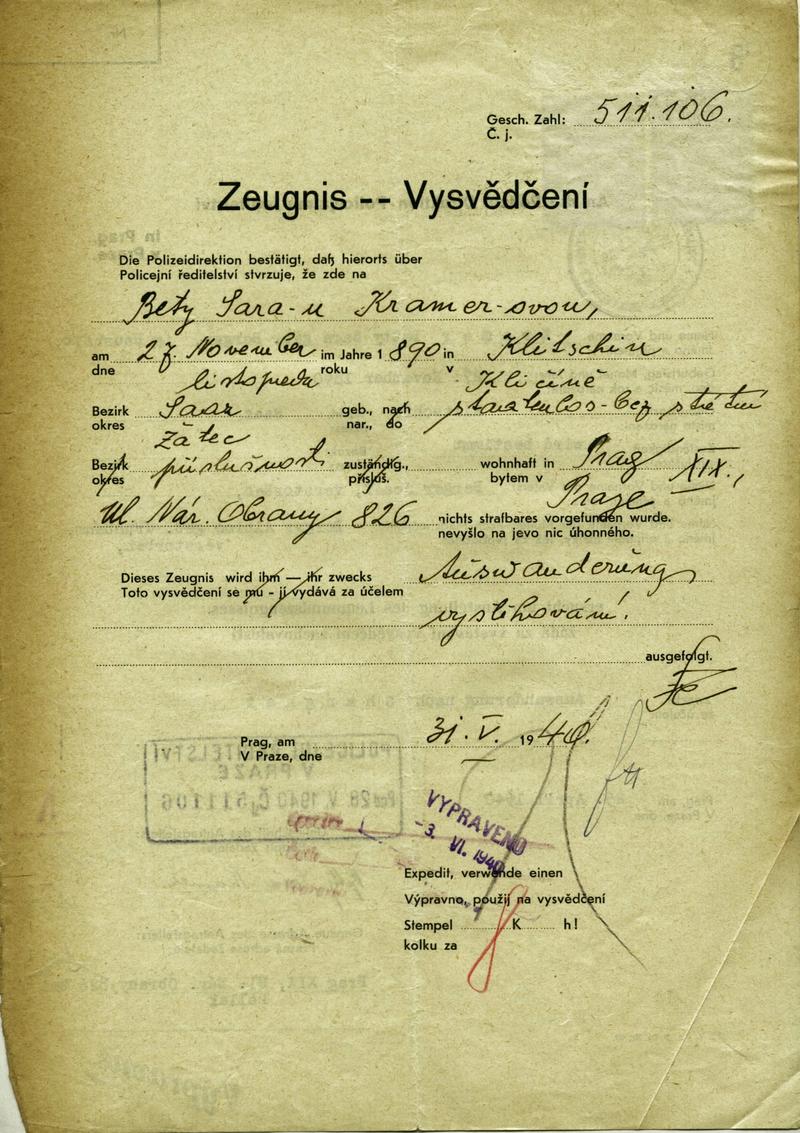 Gesch. Zahl: 511.106.
Č. j.
Zeugnis -- Vysvědčení
Die Polizeidirektion bestätigt, daß hierorts über
Policejní ředitelství stvrzuje, že zde na
Bety Sara-u Kramer-ovou,
am 27. November im Jahre 1 890 in Klitschin
dne listopada roku v Kličíně
Bezirk Saaz geb., nach staatenlos - bez státní
okres Žatec nar., do
Bezirk příslušnosti zuständig., wohnhaft in Prag XIX.,
okres příslš. bytem v Praze
Ul. Nár. Obrany 826 nichts strafbares vorgefunden wurde.
nevyšlo na jevo nic úhonného.
Dieses Zeugnis wird ihm — ihr zwecks Auswanderung
Toto vysvědčení se mu - jí vydává za účelem
vystěhování.
ausgefolgt.
Prag, am 31. V. 1940.
V Praze, dne
VYPRAVENO
-3. VI. 1940
Expedit, verwende einen
Výpravno, použij na vysvědčení
Stempel K h!
kolku za